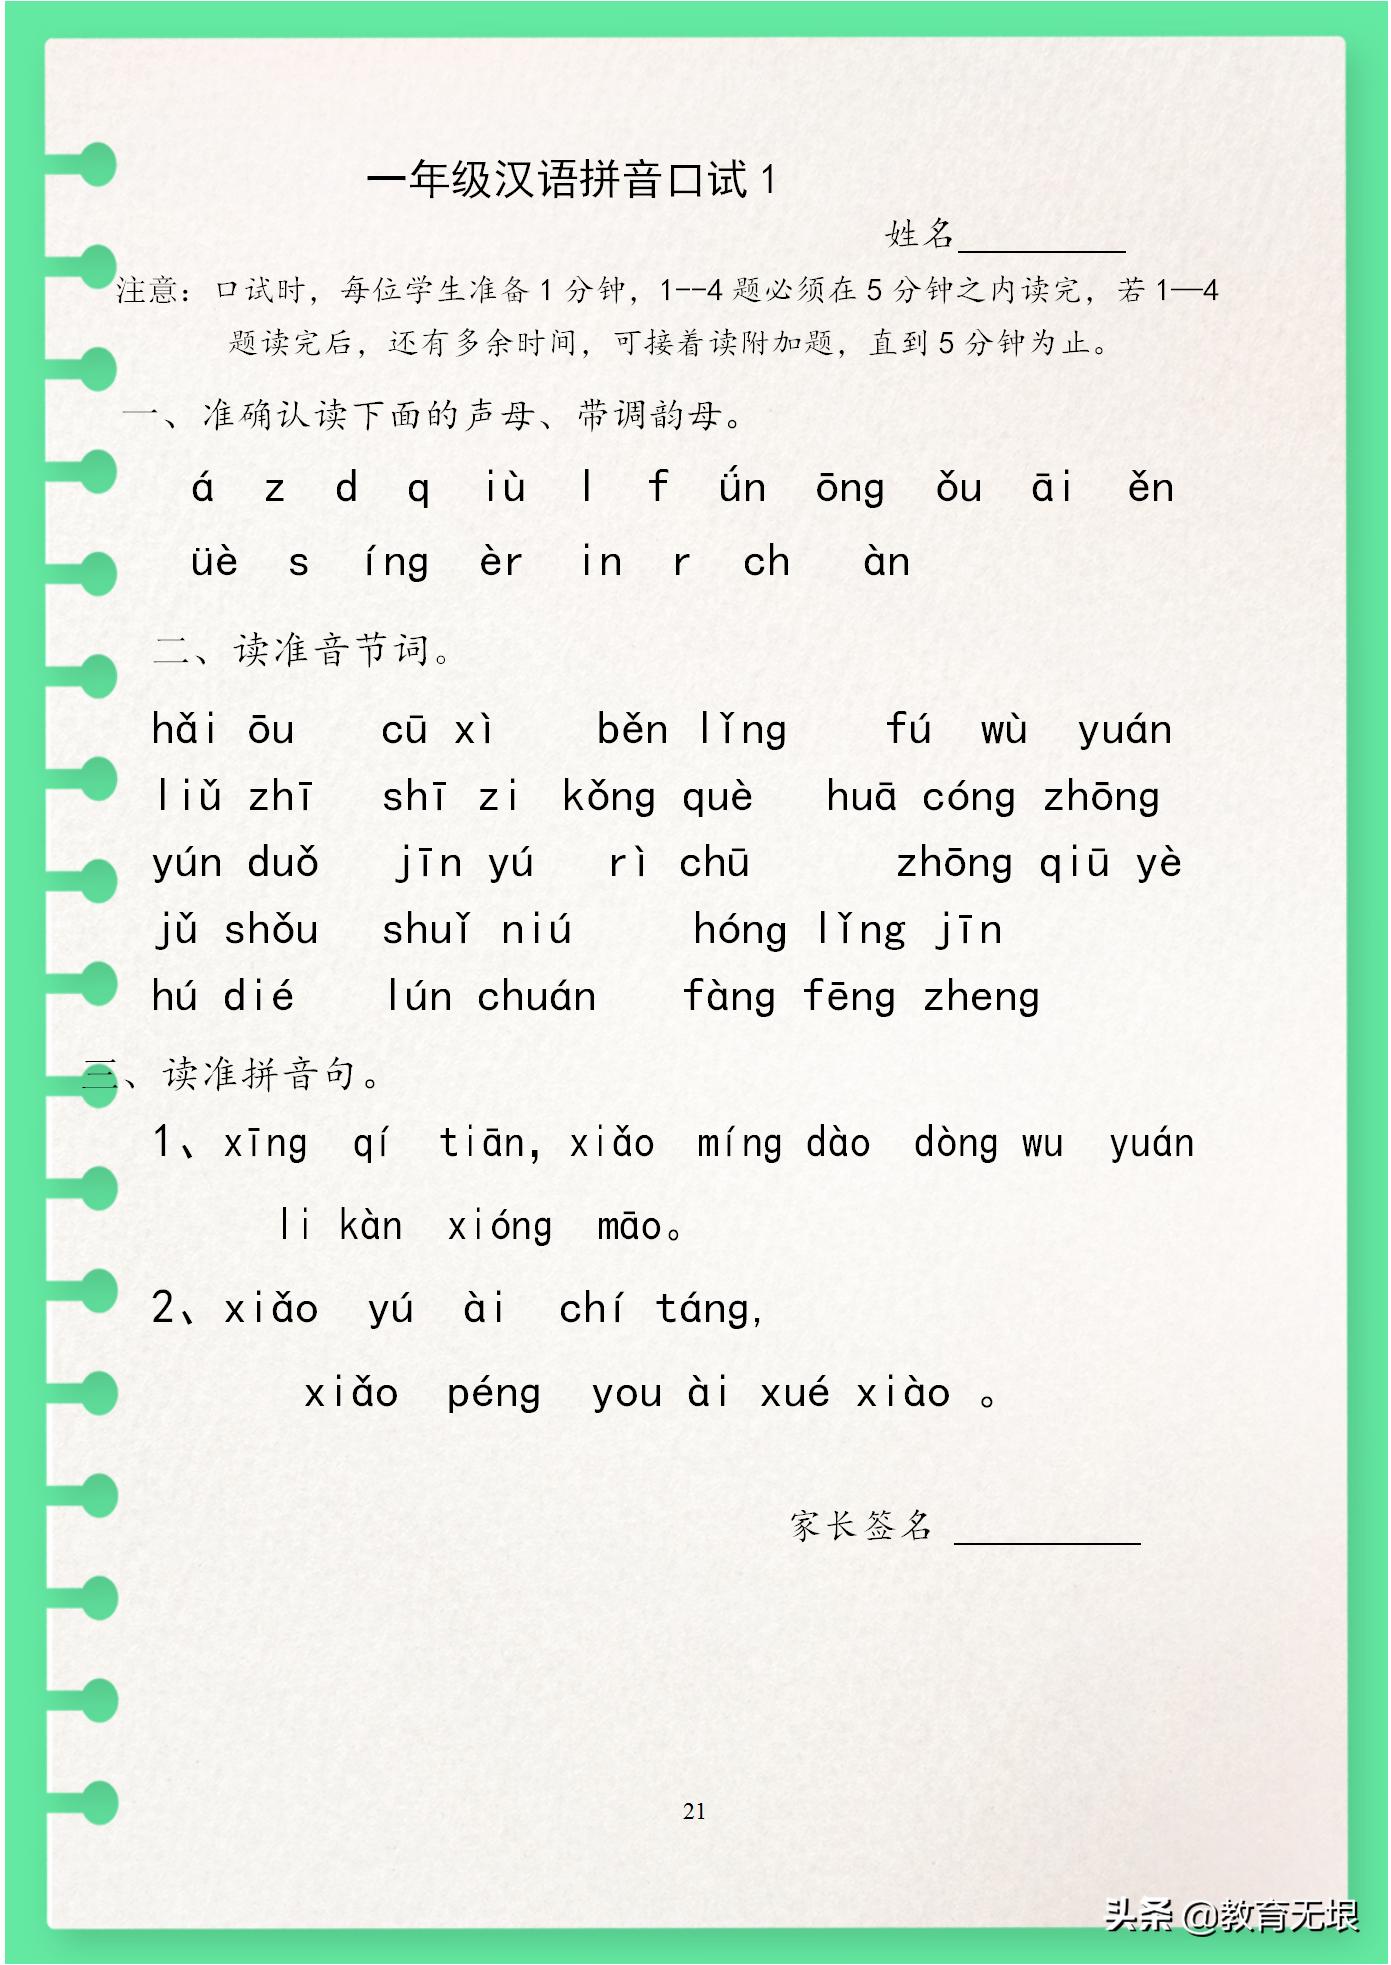 一年级汉语拼音口试1
姓名
注意：口试时，每位学生准备1分钟，1--4题必须在5分钟之内读完，若1—4
题读完后，还有多余时间，可接着读附加题，直到5分钟为止。
一、准确认读下面的声母、带调韵母。
á z d q iù l f ǘn ōng ǒu āi ěn
üè s íng èr in r ch àn
二、读准音节词。
hǎi ōu cū xì běn lǐng fú wù yuán
liǔ zhī shī zi kǒng què huā cóng zhōng
yún duǒ jīn yú rì chū zhōng qiū yè
jǔ shǒu shuǐ niú hóng lǐng jīn
hú dié lún chuán fàng fēng zheng
三、读准拼音句。
1、xīng qí tiān, xiǎo míng dào dòng wu yuán
li kàn xióng māo。
2、xiǎo yú ài chí táng,
xiǎo péng you ài xué xiào 。
家长签名
21
头条 @教育无垠